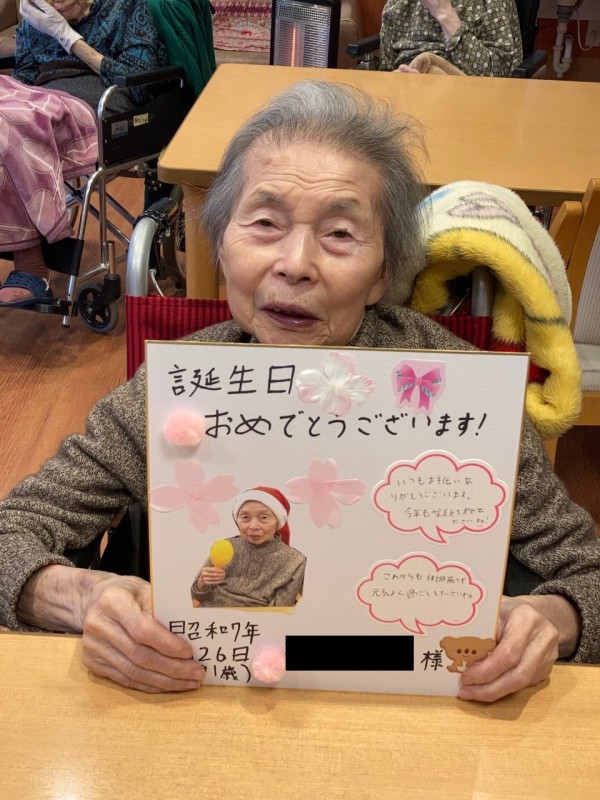 誕生日
おめでとうございます!
いつもお手伝いあ
りがとうございます。
今年も
ださいね!
これからも体調崩さず
元気よく過ごしてくださいね
昭和7年
26日
1歳)
様